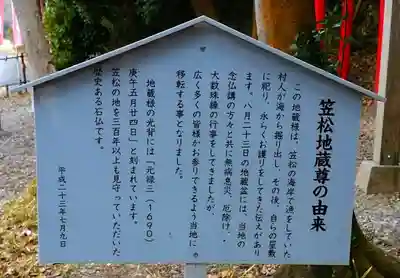 笠松地蔵尊の由来
この地蔵様は、笠松の海岸で漁をしていた
村人が海から掘り出し、その後、自らの屋敷
に祀り、永らくお護りをしてきた伝えがあり
ます。八月二十三日の地蔵盆には、当地の
念仏講の方々と共に無病息災、厄除け、
大数珠繰の行事をしてきましたが、
広く多くの皆様がお参りできるよう当地に
移転する事となりました。
地蔵様の光背には「元禄三(1690)
庚午五月廿四日」と刻まれています。
笠松の地を三百年以上も見守っていただいた
歴史ある石仏です。
平成二十三年七月九日